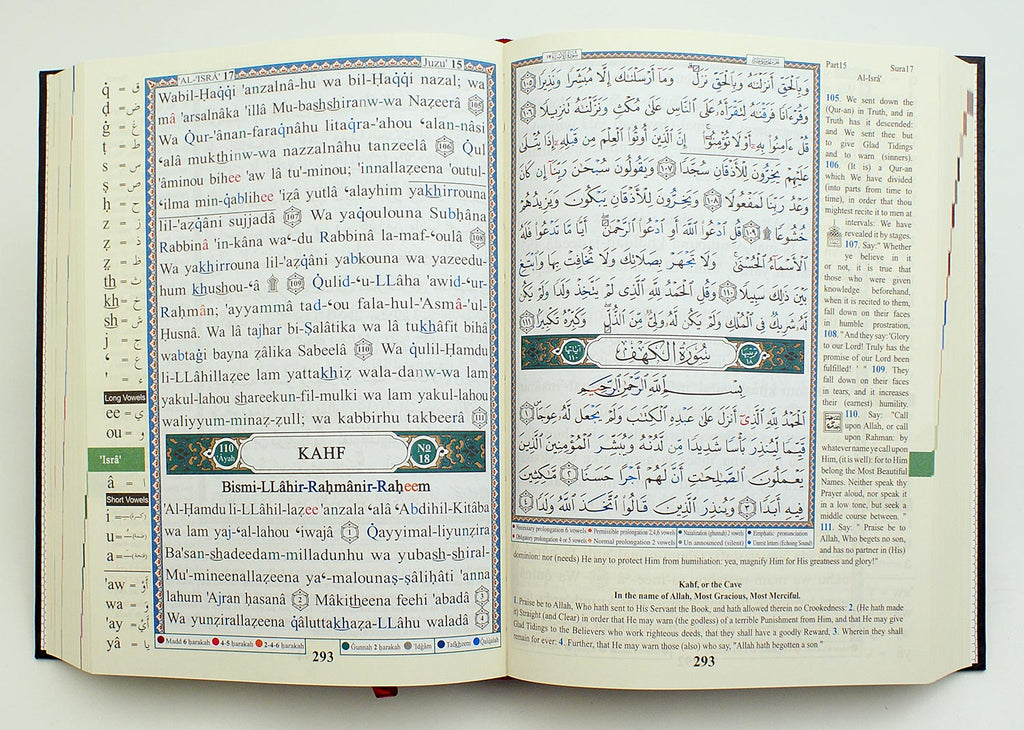 'AL-'ISRÂ' 17
Juzu' 15
Wabil-Ḥaqqi 'anzalnâ-hu wa bil-Ḥaqqi nazal; wa
mâ 'arsalnâka 'illâ Mu-bashshiranw-wa Nazeerâ 105
Wa Qur-'ânan-faraqnâhu litaqra-'ahou 'alan-nâsi
'alâ mukthinw-wa nazzalnâhu tanzeelâ 106 Qul
'âminou bihee 'aw lâ tu'-minou; 'innallaẓeena 'outul-
'ilma min-qablihee 'iẓâ yutlâ 'alayhim yakhirrouna
lil-'aẓqâni sujjadâ 107 Wa yaqoulouna Subḥâna
Rabbinâ 'in-kâna wa'-du Rabbinâ la-maf-'oulâ 108
Wa yakhirrouna lil-'aẓqâni yabkouna wa yazeedu-
hum khushou-'â 109 Qulid-'u-LLâha 'awid-'ur-
Raḥmân; 'ayyammâ tad-'ou fala-hul-'Asmâ-'ul-
Ḥusnâ. Wa lâ tajhar bi-Ṣalâtika wa lâ tukhâfit bihâ
wabtaġi bayna ẓâlika Sabeelâ 110 Wa qulil-Ḥamdu
li-LLâhillaẓee lam yattakhiẓ wala-danw-wa lam
yakul-lahou shareekun-fil-mulki wa lam yakul-lahou
waliyyum-minaẓ-ẓull; wa kabbirhu takbeerâ 111
110 Âyah KAHF No 18
Bismi-LLâhir-Raḥmânir-Raḥeem
'Al-Ḥamdu li-LLâhil-laẓee 'anzala 'alâ 'Abdihil-Kitâba
wa lam yaj-'al-lahou 'iwajâ 1 Qayyimal-liyunẓira
Ba'san-shadeedam-milladunhu wa yubash-shiral-
Mu'-mineenallaẓeena ya'-malounaṣ-ṣâliḥâti 'anna
lahum 'Ajran ḥasanâ 2 Mâkitheena feehi 'abadâ 3
Wa yunẓirallaẓeena qâluttakhaẓa-LLâhu waladâ 4
Madd 6 ḥarakah 4-5 ḥarakah 2-4-6 ḥarakah Ġunnah 2 ḥarakah 'Idġâm Tafkheem Qalqalah
293
q = ق
ḍ = ض
ġ = غ
ṭ = ط
ṣ = ص
ḥ = ح
z = ز
ẓ = ذ
ẓ = ظ
th = ث
kh = خ
sh = ش
j = ج
' = ع
' = ء
Long Vowels
ee = ي
ou = و
'Isrâ'
â = ا
Short Vowels
i =
u =
a =
'aw = أَوْ
wa = وَ
'ay = أَيْ
yâ = يا
وَبِالْحَقِّ أَنزَلْنَاهُ وَبِالْحَقِّ نَزَلَ وَمَا أَرْسَلْنَاكَ إِلَّا مُبَشِّرًا وَنَذِيرًا ١٠٥
وَقُرْءَانًا فَرَقْنَاهُ لِتَقْرَأَهُ عَلَى النَّاسِ عَلَى مُكْثٍ وَنَزَّلْنَاهُ تَنزِيلًا ١٠٦
قُلْ ءَامِنُوا بِهِ أَوْ لَا تُؤْمِنُوا إِنَّ الَّذِينَ أُوتُوا الْعِلْمَ مِن قَبْلِهِ إِذَا يُتْلَى
عَلَيْهِمْ يَخِرُّونَ لِلْأَذْقَانِ سُجَّدًا ١٠٧ وَيَقُولُونَ سُبْحَانَ رَبِّنَا إِن كَانَ
وَعْدُ رَبِّنَا لَمَفْعُولًا ١٠٨ وَيَخِرُّونَ لِلْأَذْقَانِ يَبْكُونَ وَيَزِيدُهُمْ
خُشُوعًا ۩ ١٠٩ قُلِ ادْعُوا اللَّهَ أَوِ ادْعُوا الرَّحْمَنَ أَيًّا مَّا تَدْعُوا فَلَهُ
الْأَسْمَاءُ الْحُسْنَى وَلَا تَجْهَرْ بِصَلَاتِكَ وَلَا تُخَافِتْ بِهَا وَابْتَغِ
بَيْنَ ذَلِكَ سَبِيلًا ١١٠ وَقُلِ الْحَمْدُ لِلَّهِ الَّذِي لَمْ يَتَّخِذْ وَلَدًا وَلَمْ يَكُن
لَّهُ شَرِيكٌ فِي الْمُلْكِ وَلَمْ يَكُن لَّهُ وَلِيٌّ مِّنَ الذُّلِّ وَكَبِّرْهُ تَكْبِيرًا ١١١
ترتيبها ١٨ سُورَةُ الْكَهْفِ آياتها ١١٠
بِسْمِ اللَّهِ الرَّحْمَنِ الرَّحِيمِ
الْحَمْدُ لِلَّهِ الَّذِي أَنزَلَ عَلَى عَبْدِهِ الْكِتَابَ وَلَمْ يَجْعَل لَّهُ عِوَجًا ١
قَيِّمًا لِّيُنذِرَ بَأْسًا شَدِيدًا مِّن لَّدُنْهُ وَيُبَشِّرَ الْمُؤْمِنِينَ الَّذِينَ
يَعْمَلُونَ الصَّالِحَاتِ أَنَّ لَهُمْ أَجْرًا حَسَنًا ٢ مَّاكِثِينَ
فِيهِ أَبَدًا ٣ وَيُنذِرَ الَّذِينَ قَالُوا اتَّخَذَ اللَّهُ وَلَدًا ٤
Necessary prolongation 6 vowels Permissible prolongation 2,4,6 vowels Nazalization (ghunnah) 2 vowels Emphatic pronunciation
Obligatory prolongation 4 or 5 vowels Normal prolongation 2 vowels Un announced (silent) Unrest letters (Echoing Sound)
Part15 Sura17
Al-Isrâ'
105. We sent down the
(Qur-an) in Truth, and in
Truth has it descended:
and We sent thee but
to give Glad Tidings
and to warn (sinners).
106. (It is) a Qur-an
which We have divided
(into parts from time to
time), in order that thou
mightest recite it to men at
intervals: We have
revealed it by stages.
107. Say:" Whether
ye believe in it
or not, it is true that
those who were given
knowledge beforehand,
when it is recited to them,
fall down on their faces
in humble prostration,
108. "And they say: 'Glory
to our Lord! Truly has the
promise of our Lord been
fulfilled! ' " 109. They
fall down on their faces
in tears, and it increases
their (earnest) humility.
110. Say: "Call
upon Allah, or call
upon Rahman: by
whatever name ye call upon
Him, (it is) well: for to Him
belong the Most Beautiful
Names. Neither speak thy
Prayer aloud, nor speak it
in a low tone, but seek a
middle course between."
111. Say: " Praise be to
Allah, Who begets no son,
and has no partner in (His)
dominion: nor (needs) He any to protect Him from humiliation: yea, magnify Him for His greatness and glory!"
Kahf, or the Cave
In the name of Allah, Most Gracious, Most Merciful.
1. Praise be to Allah, Who hath sent to His Servant the Book, and hath allowed therein no Crookedness: 2. (He hath made
it) Straight (and Clear) in order that He may warn (the godless) of a terrible Punishment from Him, and that He may give
Glad Tidings to the Believers who work righteous deeds, that they shall have a goodly Reward, 3. Wherein they shall
remain for ever: 4. Further, that He may warn those (also) who say, "Allah hath begotten a son "
293